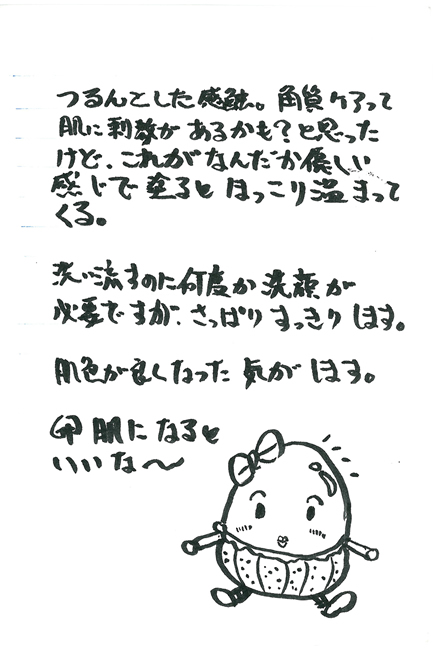 つるんとした感触。角質ケアって
肌に刺激があるかも？と思った
けど、これがなんだか優しい
感じで塗るとほっこり温まって
くる。
洗い流すのに何度か洗顔が
必要ですが、さっぱりすっきりします。
肌色が良くなった気がします。
卵肌になると
いいな〜